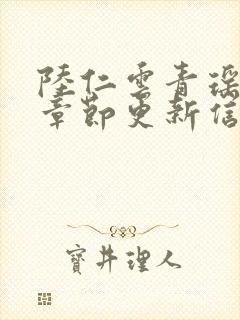 陸仁雲青瑤
章節更新信
寶井理人